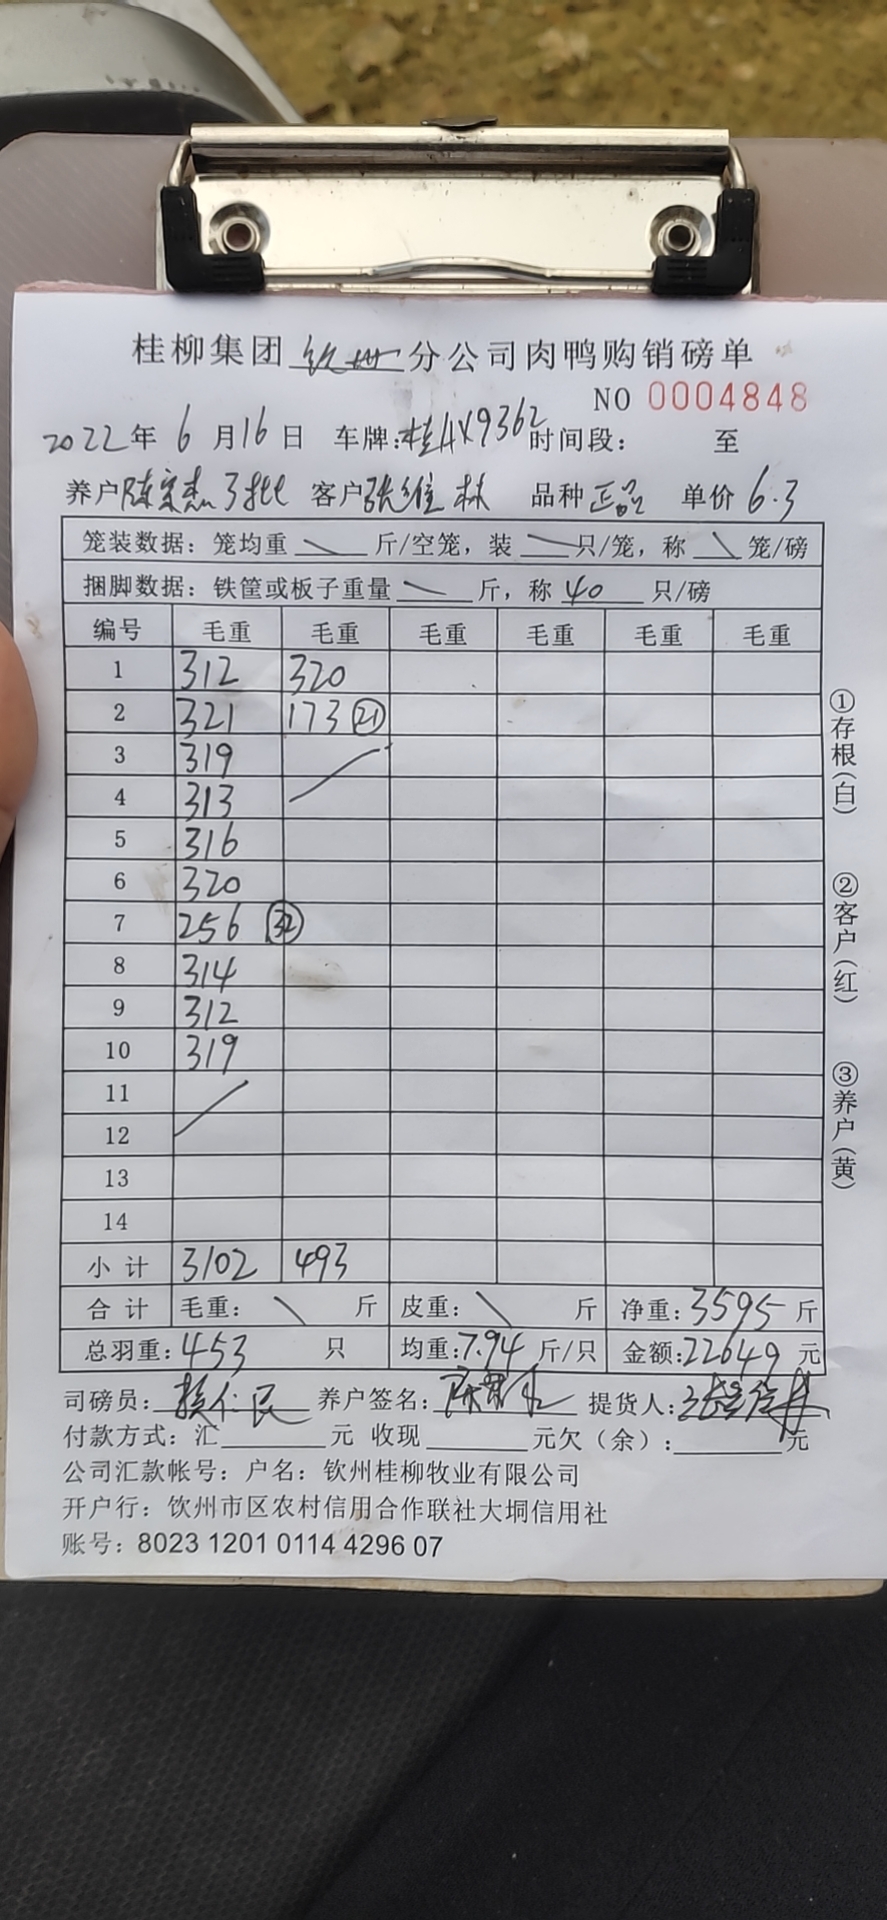 桂柳集团 钦州 分公司肉鸭购销磅单
NO 0004848
2022年 6 月16日 车牌:桂AX9362 时间段: 至
养户 陈 客户 张维林 品种 正品 单价 6.3
笼装数据: 笼均重 \ 斤/空笼, 装 \ 只/笼, 称 \ 笼/磅
捆脚数据: 铁筐或板子重量 \ 斤, 称 40 只/磅
编号 毛重 毛重 毛重 毛重 毛重 毛重
1 312 320
2 321 173 ㉑
3 319
4 313
5 316
6 320
7 256 ㉜
8 314
9 312
10 319
11
12
13
14
小计 3102 493
合计 毛重: \ 斤 皮重: \ 斤 净重: 3595 斤
总羽重: 453 只 均重: 7.94 斤/只 金额: 22649 元
司磅员: 仁民 养户签名: 陈 提货人: 张维林
付款方式: 汇 元 收现 元欠(余): 元
公司汇款帐号: 户名: 钦州桂柳牧业有限公司
开户行: 饮州市区农村信用合作联社大垌信用社
账号: 8023 1201 0114 4296 07
①存根(白)
②客户(红)
③养户(黄)